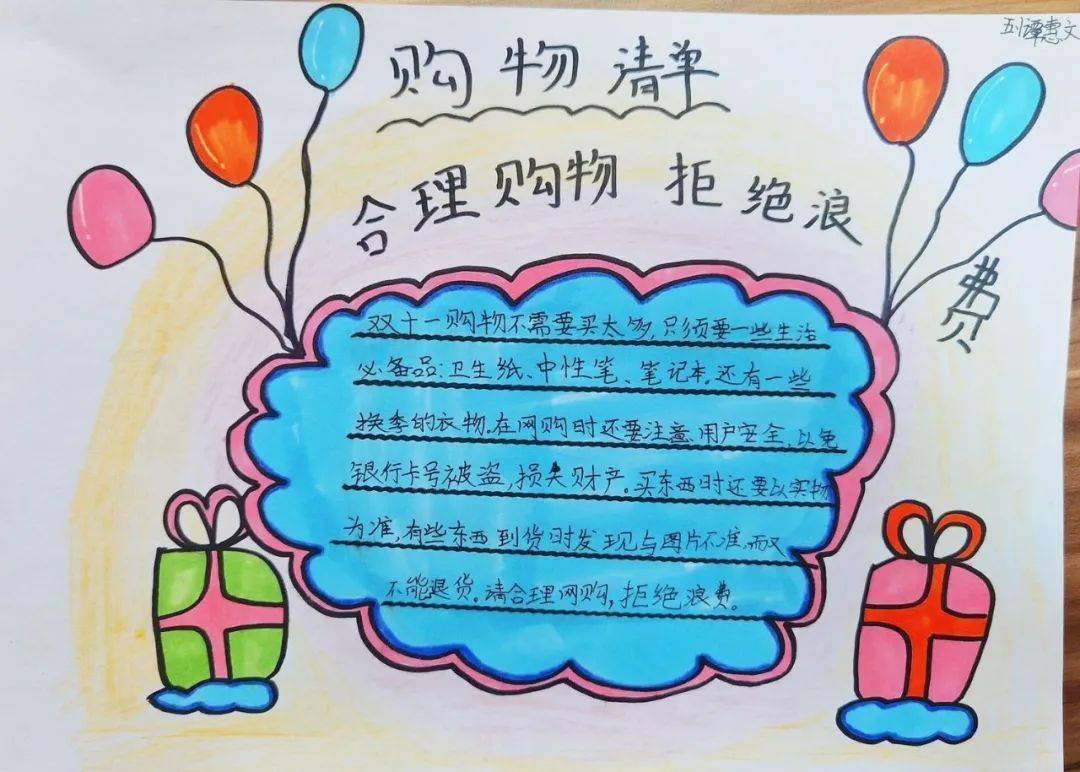 五1谭惠文
购物清单
合理购物 拒绝浪费
双十一购物不需要买太多,只须要一些生活
必备品:卫生纸、中性笔、笔记本.还有一些
换季的衣物.在网购时还要注意、用户安全,以免
银行卡号被盗,损失财产。买东西时还要以实物
为准,有些东西到货时发现与图片不准,而又
不能退货。请合理网购,拒绝浪费。